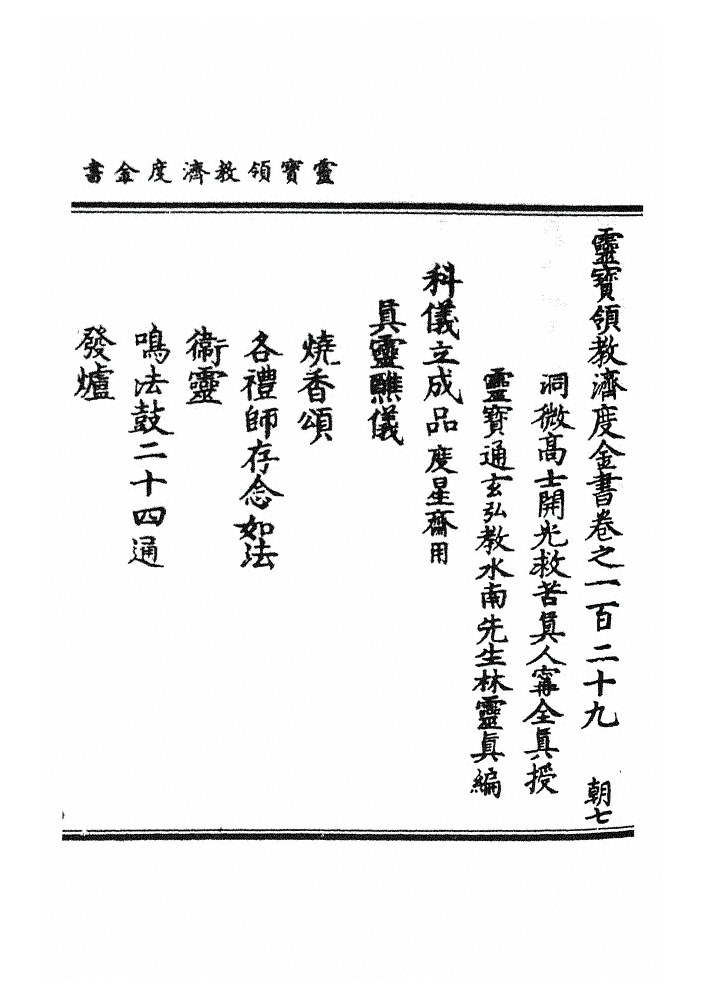 靈寶領教濟度金書
靈寶領教濟度金書卷之一百二十九　朝七
洞微高士開光救苦眞人甯全眞授
靈寶通玄弘教水南先生林靈眞編
科儀立成品度星齋用
眞靈醮儀
燒香頌
各禮師存念如法
衞靈
鳴法鼓二十四通
發爐